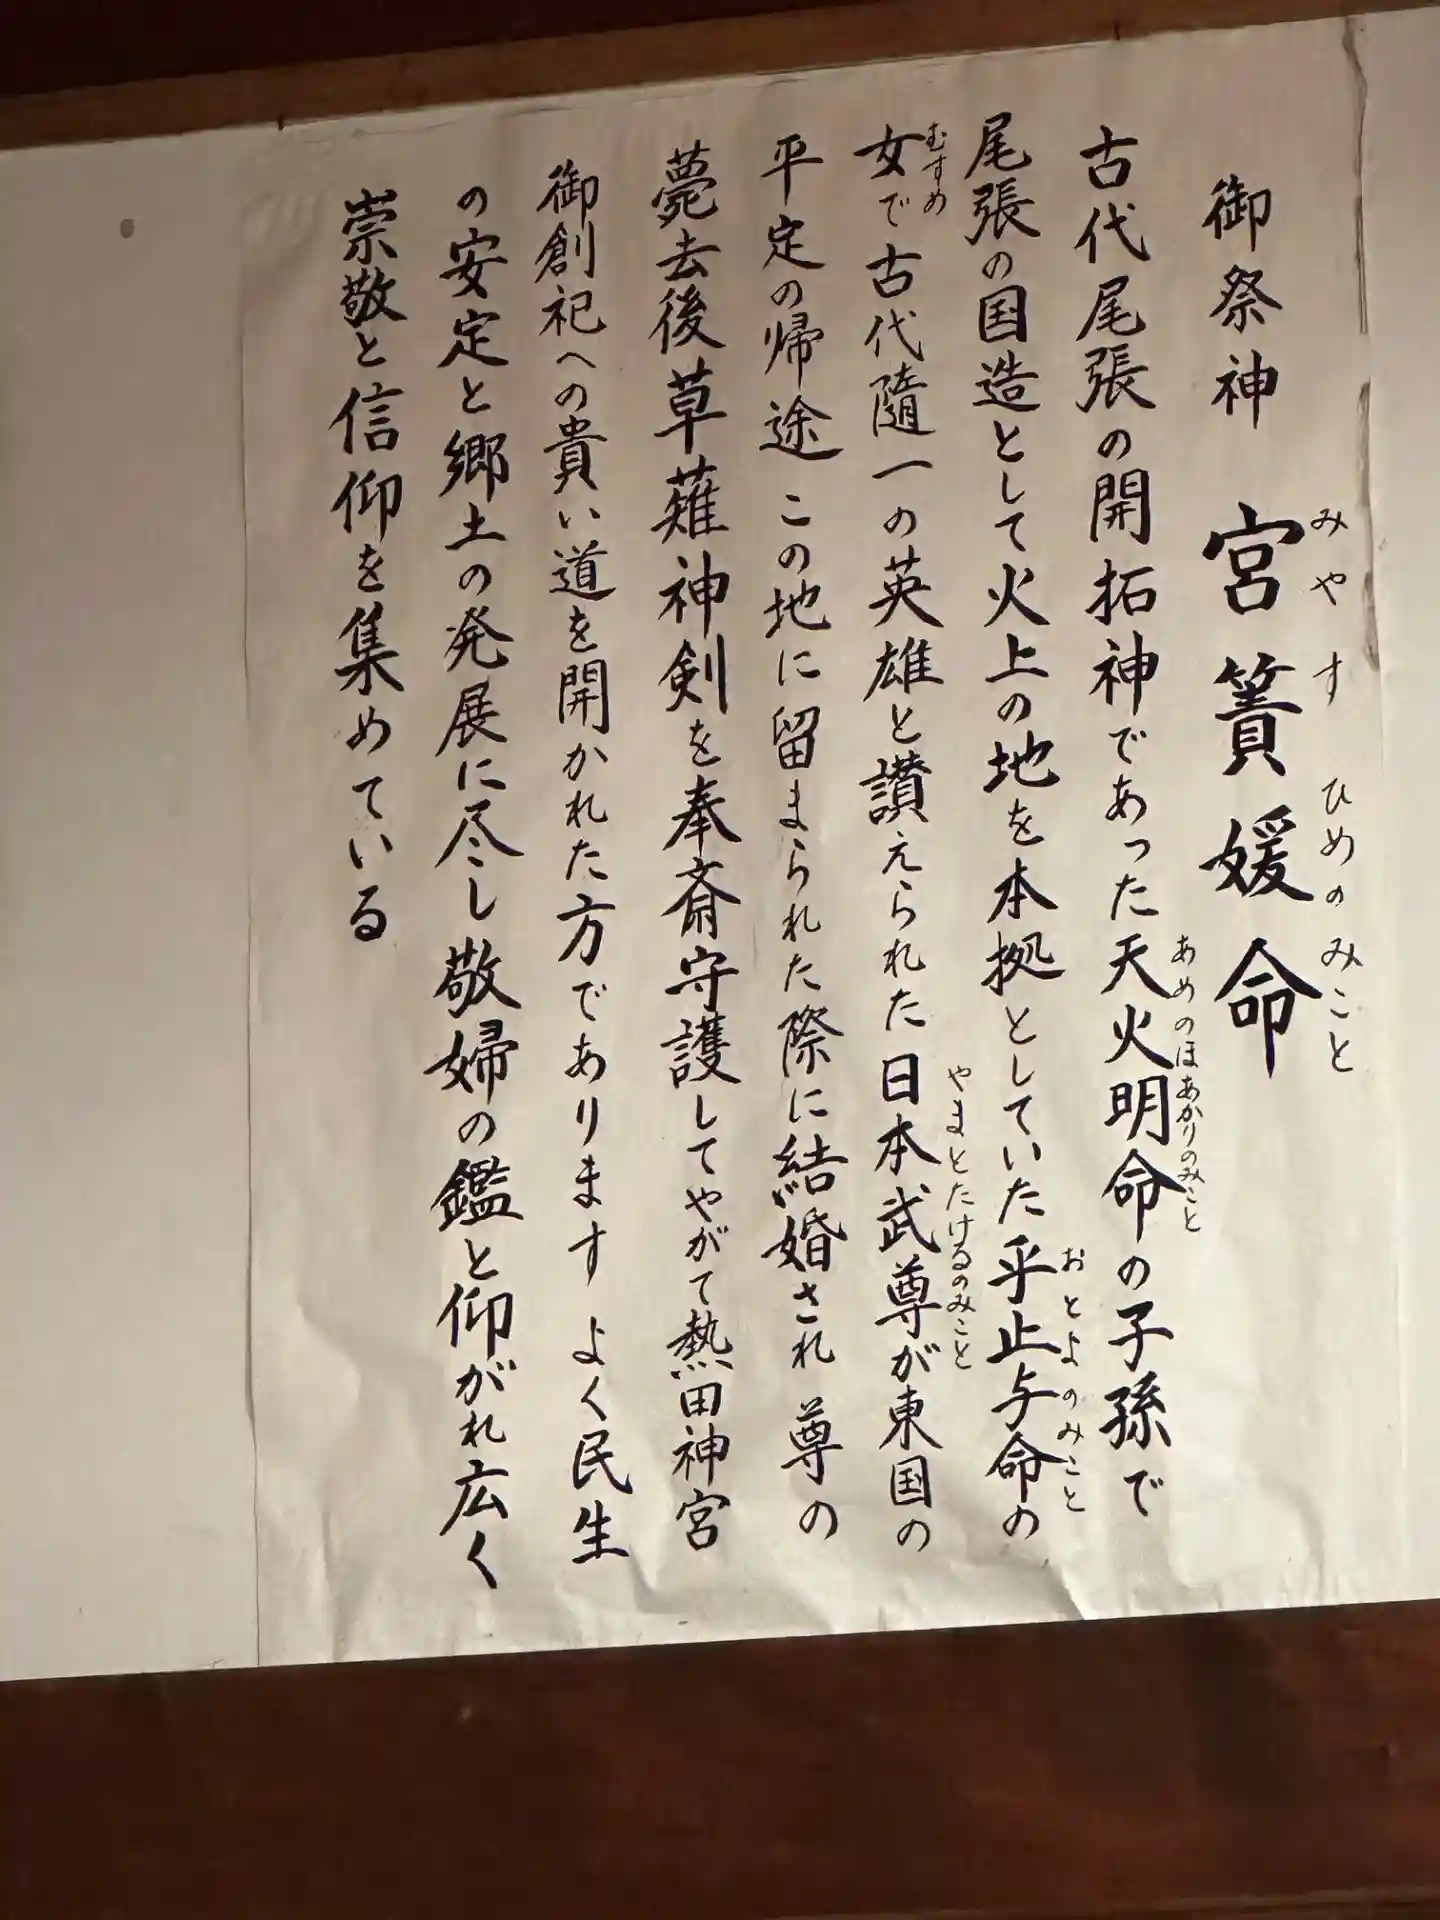 御祭神 宮簀媛命
みやす ひめのみこと
古代尾張の開拓神であった天火明命の子孫で
あめのほあかりのみこと
尾張の国造として火上の地を本拠としていた乎止与命の
おとよのみこと
女で古代随一の英雄と讃えられた日本武尊が東国の
むすめ やまとたけるのみこと
平定の帰途 この地に留まられた際に結婚され 尊の
薨去後草薙神剣を奉斎守護してやがて熱田神宮
御創祀への貴い道を開かれた方であります よく民生
の安定と郷土の発展に尽し敬婦の鑑と仰がれ広く
崇敬と信仰を集めている